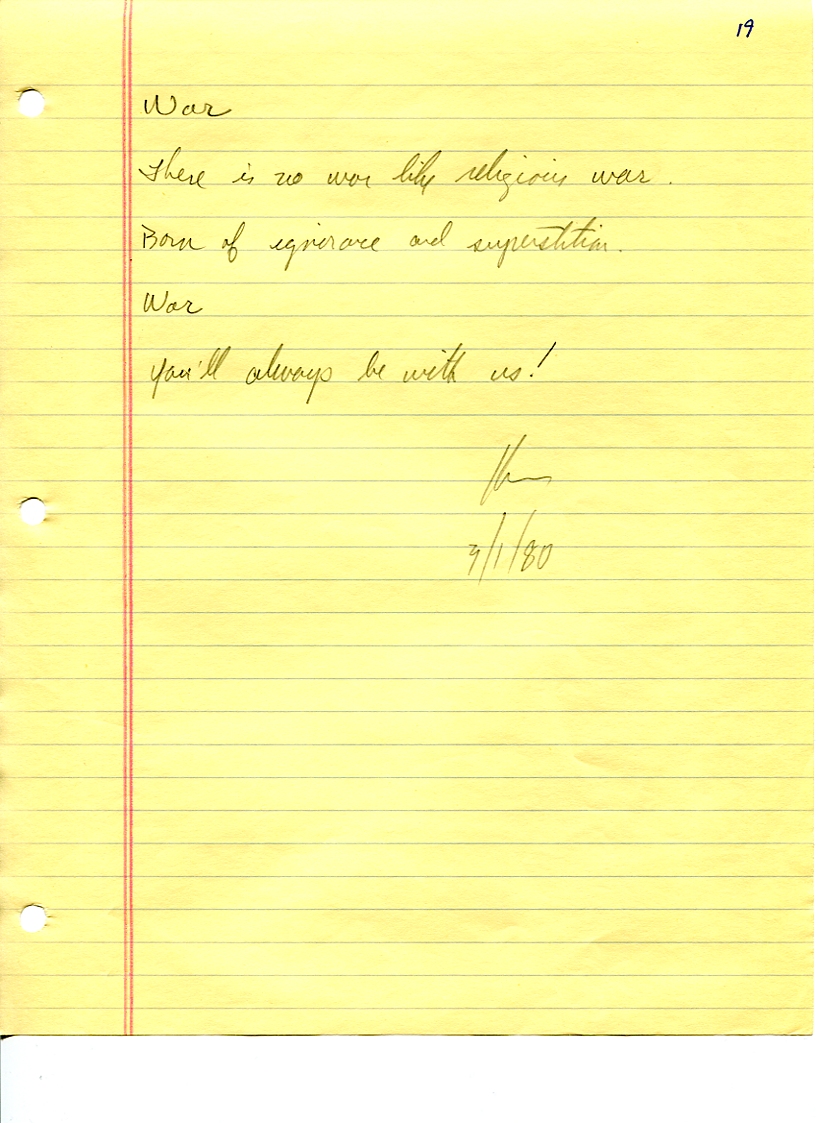 19
War
There is no war like religious war.
Born of ignorance and superstition.
War
You'll always be with us!
/1/80